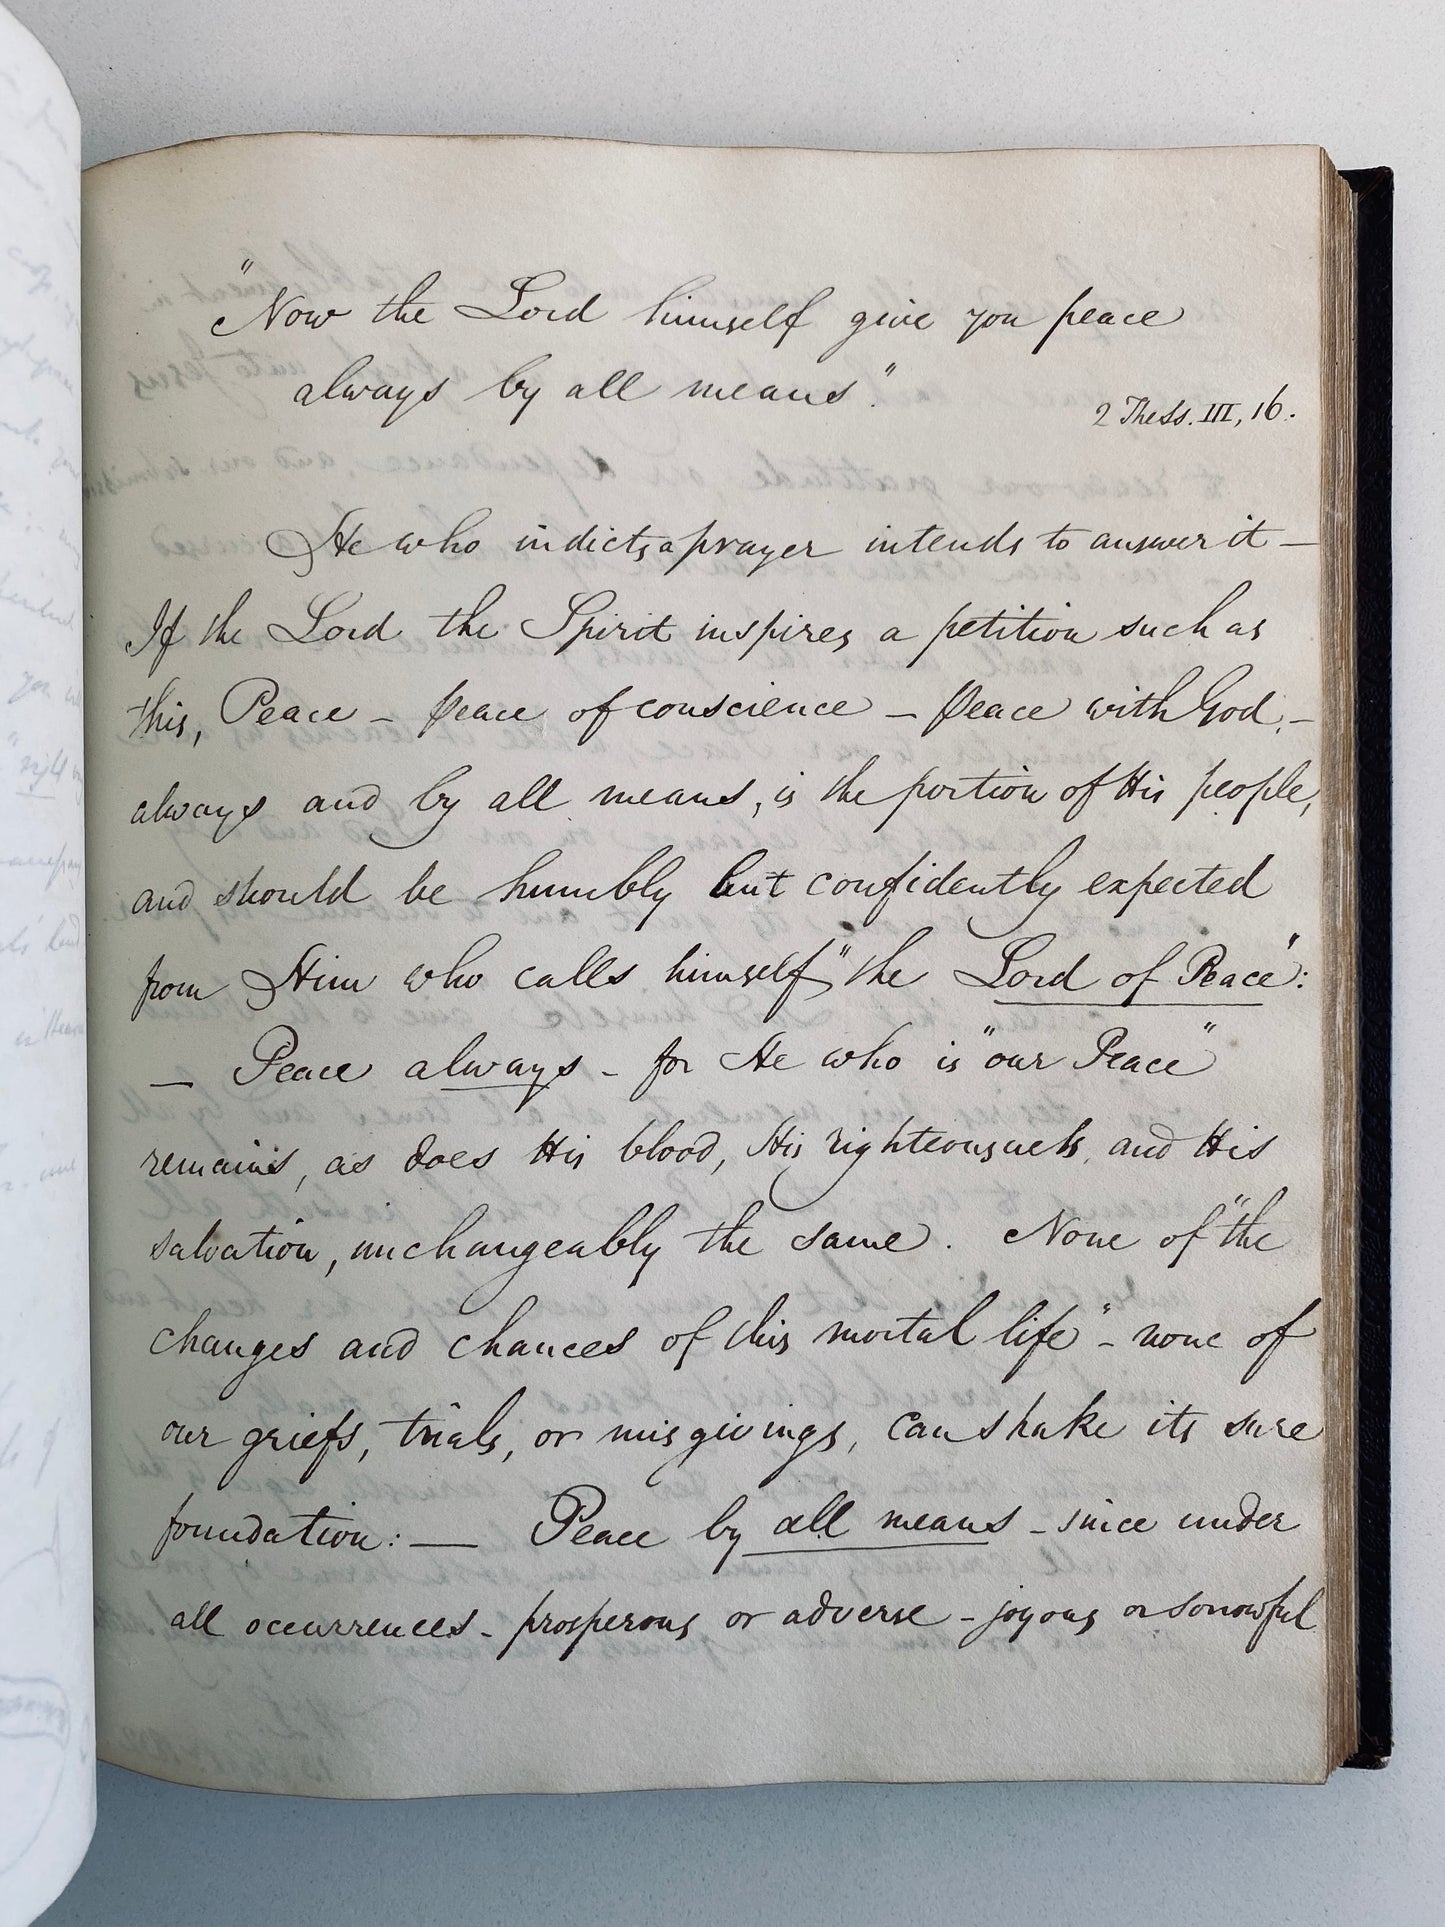 "Now the Lord himself give you peace
always by all means."
2 Thess. III, 16.
He who indicts a prayer intends to answer it —
If the Lord the Spirit inspires a petition such as
this, Peace – peace of conscience – peace with God, –
always and by all means, is the portion of His people,
and should be humbly but confidently expected
from Him who calls himself "the Lord of Peace":
— Peace always – for He who is "our Peace"
remains, as does His blood, His righteousness, and His
salvation, unchangeably the same. None of "the
changes and chances of this mortal life" – none of
our griefs, trials, or misgivings, can shake its sure
foundation: — Peace by all means – since under
all occurrences – prosperous or adverse – joyous or sorrowful